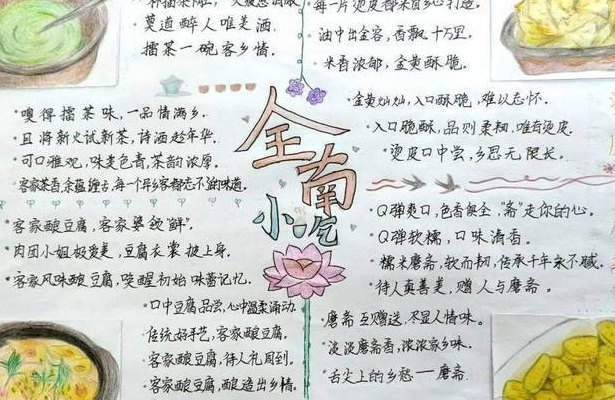 莫道醉人唯美酒
擂茶一碗客乡情.
·油中出金窑,香飘十万里.
·米香浓郁,金黄酥脆.
全南小吃
·嗅得擂茶味,一品情满乡.
·且将新火试新茶,诗酒趁年华.
·可口雅观,味美色香,茶韵浓厚.
·金黄灿灿,入口酥脆,难以忘怀.
·入口脆酥,品则柔韧,唯有烫皮.
·烫皮口中尝,乡思无限长.
·客家酿豆腐,客家婆级“鲜”.
·肉团小姐极爱美,豆腐衣裳披上身.
·客家风味酿豆腐,唤醒初始味蕾记忆.
·口中豆腐品尝,心中温柔涌动.
·传统好手艺,客家酿豆腐.
·客家酿豆腐,待人礼周到.
·客家酿豆腐,酿造出乡情.
·Q弹爽口,色香俱全,“斋”走你的心.
·Q弹软糯,口味清香.
·糯米磨斋,软而韧,传承千年永不腻.
·待人真善美,赠人与磨斋.
·磨斋互赠送,尽显人情味.
·淡淡磨斋香,浓浓家乡味.
·舌尖上的乡愁——磨斋.